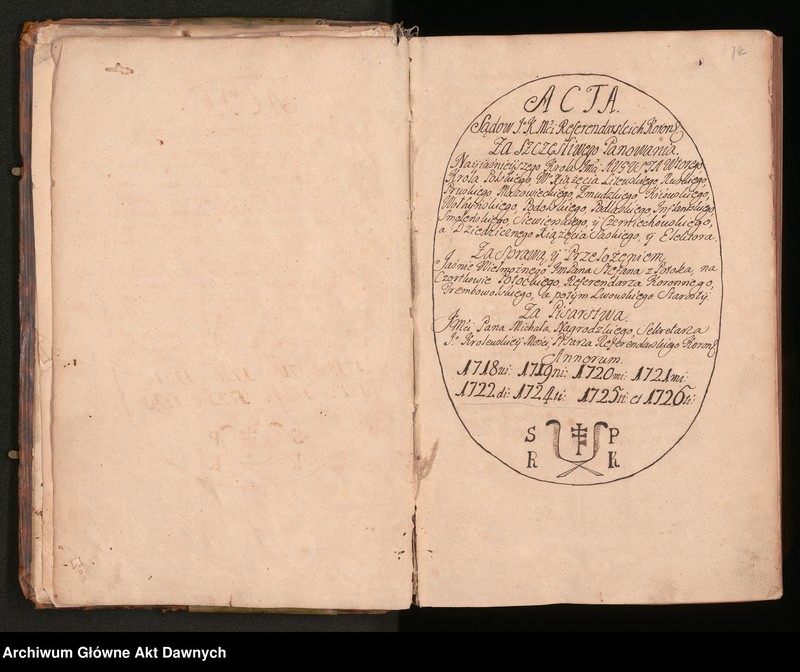 ACTA.
Sądow J. K. Mći Referendarskich Koron:
Za Szczęsliwego Panowania.
Nayiasnieyszego Krola Jmći AUGUSTA Wtorego
Krola Polskiego, W. Xiążęcia Litewskiego, Ruskiego,
Pruskiego, Mazowieckiego, Zmudzkiego, Kiiowskiego,
Wołhynskiego, Podolskiego, Podlaskiego, Inflantskiego,
Smolenskiego, Siewierskiego, y Czerniechowskiego,
a Dziedzicznego Xiążęcia Saskiego, y Elektora.
Za Sprawą y Przełożeniem
Jasnie Wielmożnego Jm Pana Stefana z Potoka, na
Czortkowie Potockiego, Referendarza Koronnego,
Trembowolskiego, a potym Lwowskiego Starosty.
Za Pisarstwa.
JMći Pana Michała Nagrodzkiego, Sekretarza
Jo Krolewskiey Mosci, Pisarza Referendarskiego Koron:
Annorum.
1718vi: 1719ni: 1720mi: 1721mi:
1722di: 1724ti: 1725ti: et 1726ti:
S P
R K
Archiwum Główne Akt Dawnych